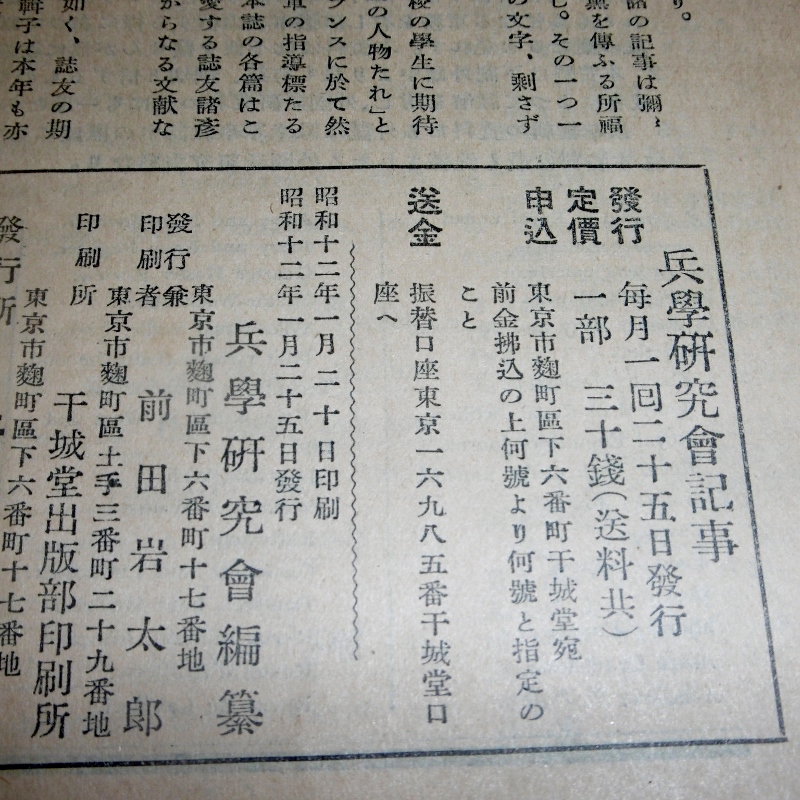 り。
諸の記事は彌〻
薫を傳ふる所福
し。その一つ一
の文字、剩さず
校の學生に期待
の人物たれ」と
ランスに於て然
軍の指導標たる
本誌の各篇はこ
愛する誌友諸彦
からなる文献な
如く、誌友の期
輯子は本年も亦
兵學研究會記事
發行 毎月一回二十五日發行
定價 一部 三十錢(送料共)
申込 東京市麴町區下六番町干城堂宛
前金拂込の上何號より何號と指定の
こと
送金 振替口座東京一六九八五番干城堂口
座へ
昭和十二年一月二十日印刷
昭和十二年一月二十五日發行
兵學研究會編纂
東京市麴町區下六番町十七番地
發行兼印刷者 前田岩太郎
東京市麴町區土手三番町二十九番地
印刷所 干城堂出版部印刷所
東京市麴町區下六番町十七番地
發行所